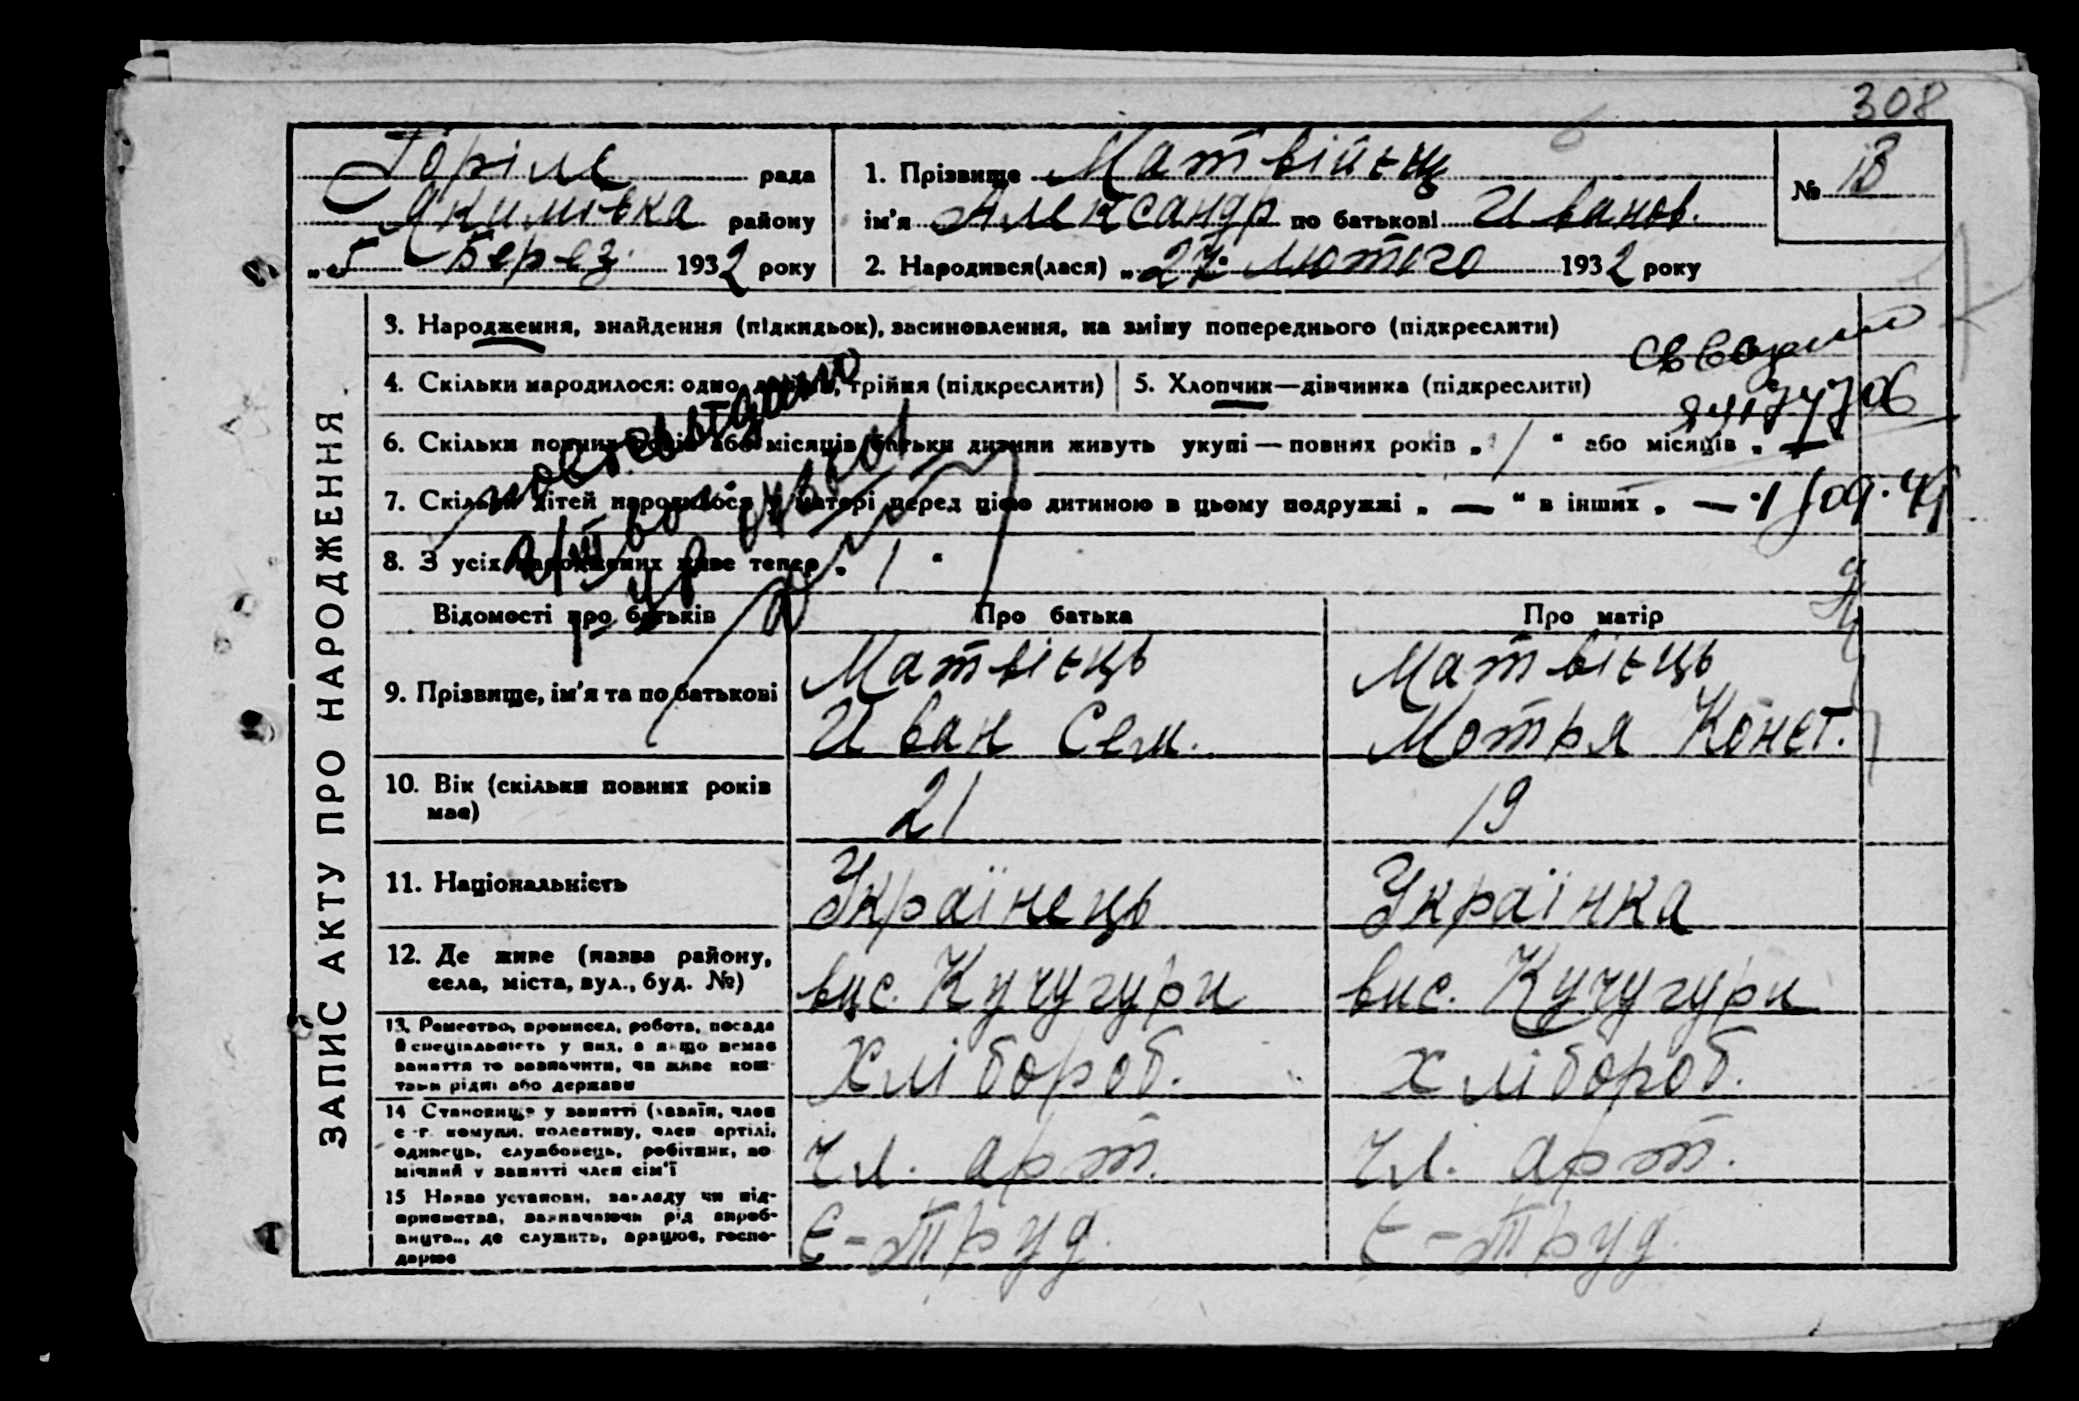 308
Горіле рада
Якимівка району
„5 Берез. 1932 року
1. Прізвище Матвійец
ім’я Александр по батькові Иванов.
2. Народився(лася) „27 Лютого 1932 року
№ 13
ЗАПИС АКТУ ПРО НАРОДЖЕННЯ
3. Народження, знайдення (підкидьок), засиновлення, на зміну попереднього (підкреслити)
4. Скільки народилося: одно, двійня, трійня (підкреслити)
5. Хлопчик—дівчинка (підкреслити)
6. Скільки повних років або місяців батьки дитини живуть укупі — повних років „ 1 “ або місяців „ —
7. Скільки дітей народилося у матері перед цією дитиною в цьому подружжі „ — “ в інших „ —
8. З усіх народжених живе тепер „ 1 “
Відомості про батьків
Про батька
Про матір
9. Прізвище, ім’я та по батькові
Матвієць
Иван Сем.
Матвієць
Мотря Конст.
10. Вік (скільки повних років
має)
21
19
11. Національність
Українець
Українка
12. Де живе (назва району,
села, міста, вул., буд. №)
вис. Кучугури
вис. Кучугури
13. Ремество, промисел, робота, посада
й спеціальність у них, а якщо немає
заняття то зазначити, чи живе кош-
тами рідні або держави
Хлібороб.
хлібороб.
14 Становище у занятті (хазяїн, член
с.-г. комуни, колективу, член артілі,
одинець, службовець, робітник, по
мічний у занятті член сім’ї
чл. арт.
чл. арт.
15 Назва установи, закладу чи під-
приємства, зазначаючи рід вироб-
ництв., де служить, працює, госпо-
дарює
Є-Труд.
Є-Труд.